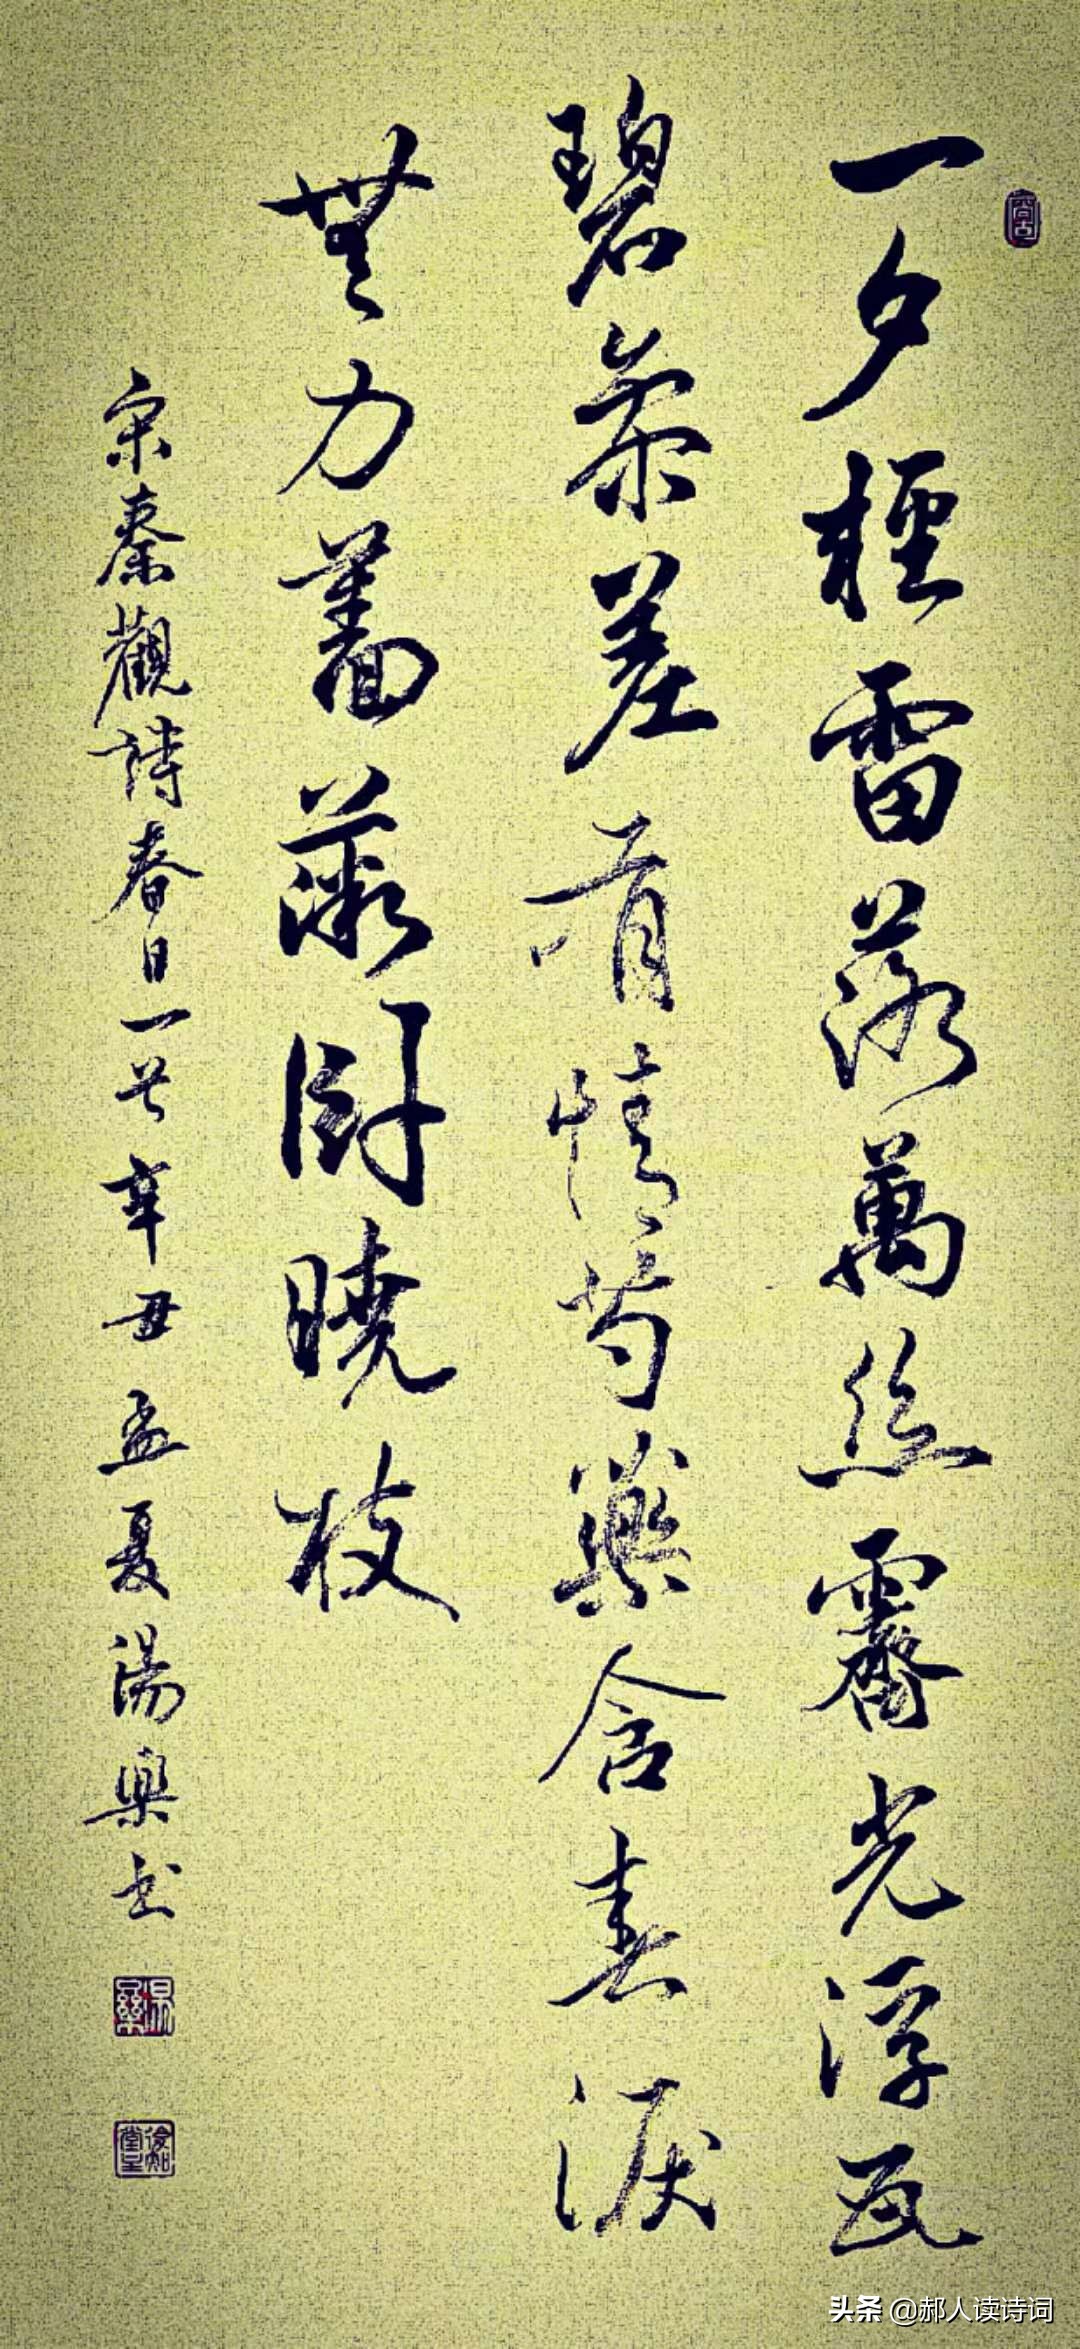 尚古
一夕輕雷落萬絲霽光浮瓦
碧參差有情芍藥含春淚
無力薔薇卧曉枝
宋秦觀詩春日一首辛丑孟夏湯樂书
头条 @郝人读诗词